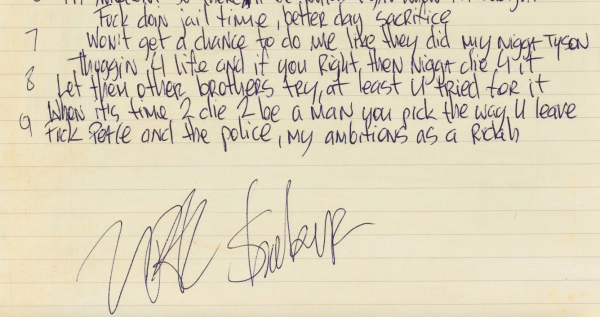 Fuck doin jail time, better day sacrifice
7 Won't get a chance to do me like they did my nigga Tyson
Thuggin 4 life and if you Right, then Nigga die 4 it
8 Let them other brothers try, at least U tried for it
When its time 2 die 2 be a man you pick the way U leave
9 Fuck Peace and the police, my ambitions as a Ridah